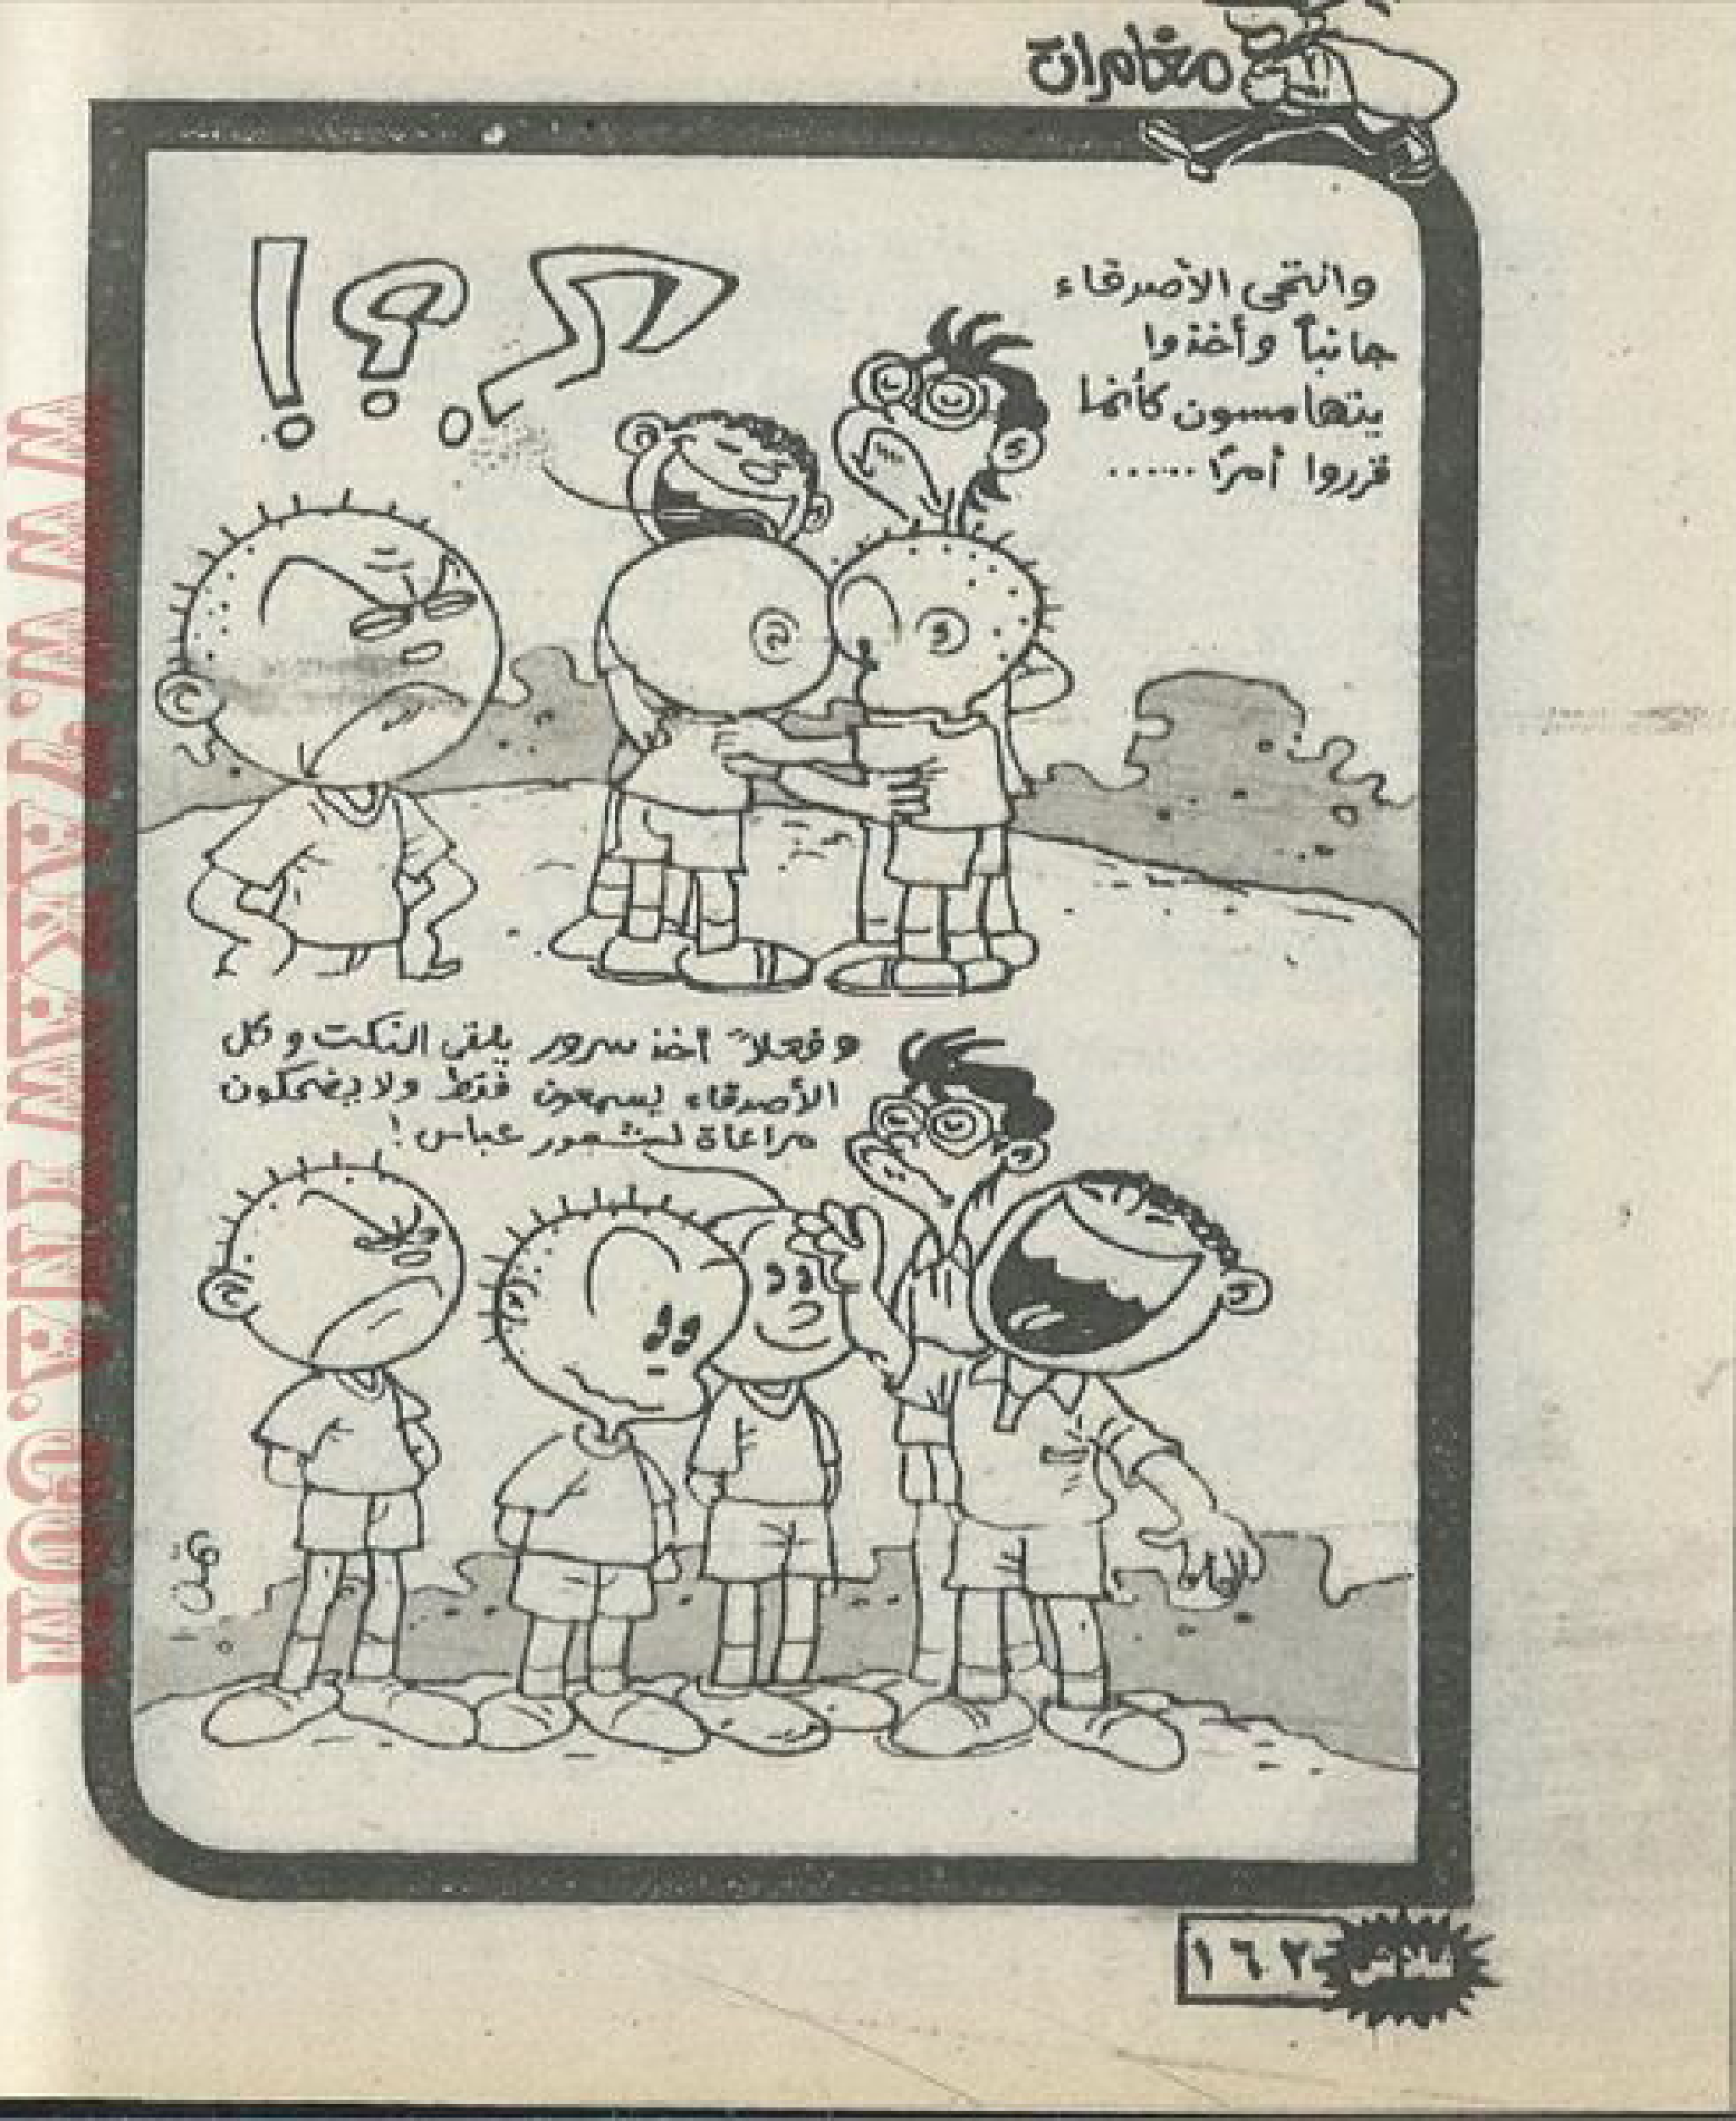 مغامرات
وانتحى الأصدقاء
جانباً وأخذوا
يتهامسون كأنما
قرروا أمرًا ......
! ? ؟
وفعلاً أخذ سرور يلقى النكت وكل
الأصدقاء يسمعون فقط ولا يضحكون
مراعاة لشعور عباس !
فلاش ١٦٢
WWW.ARABCOMICS.NET